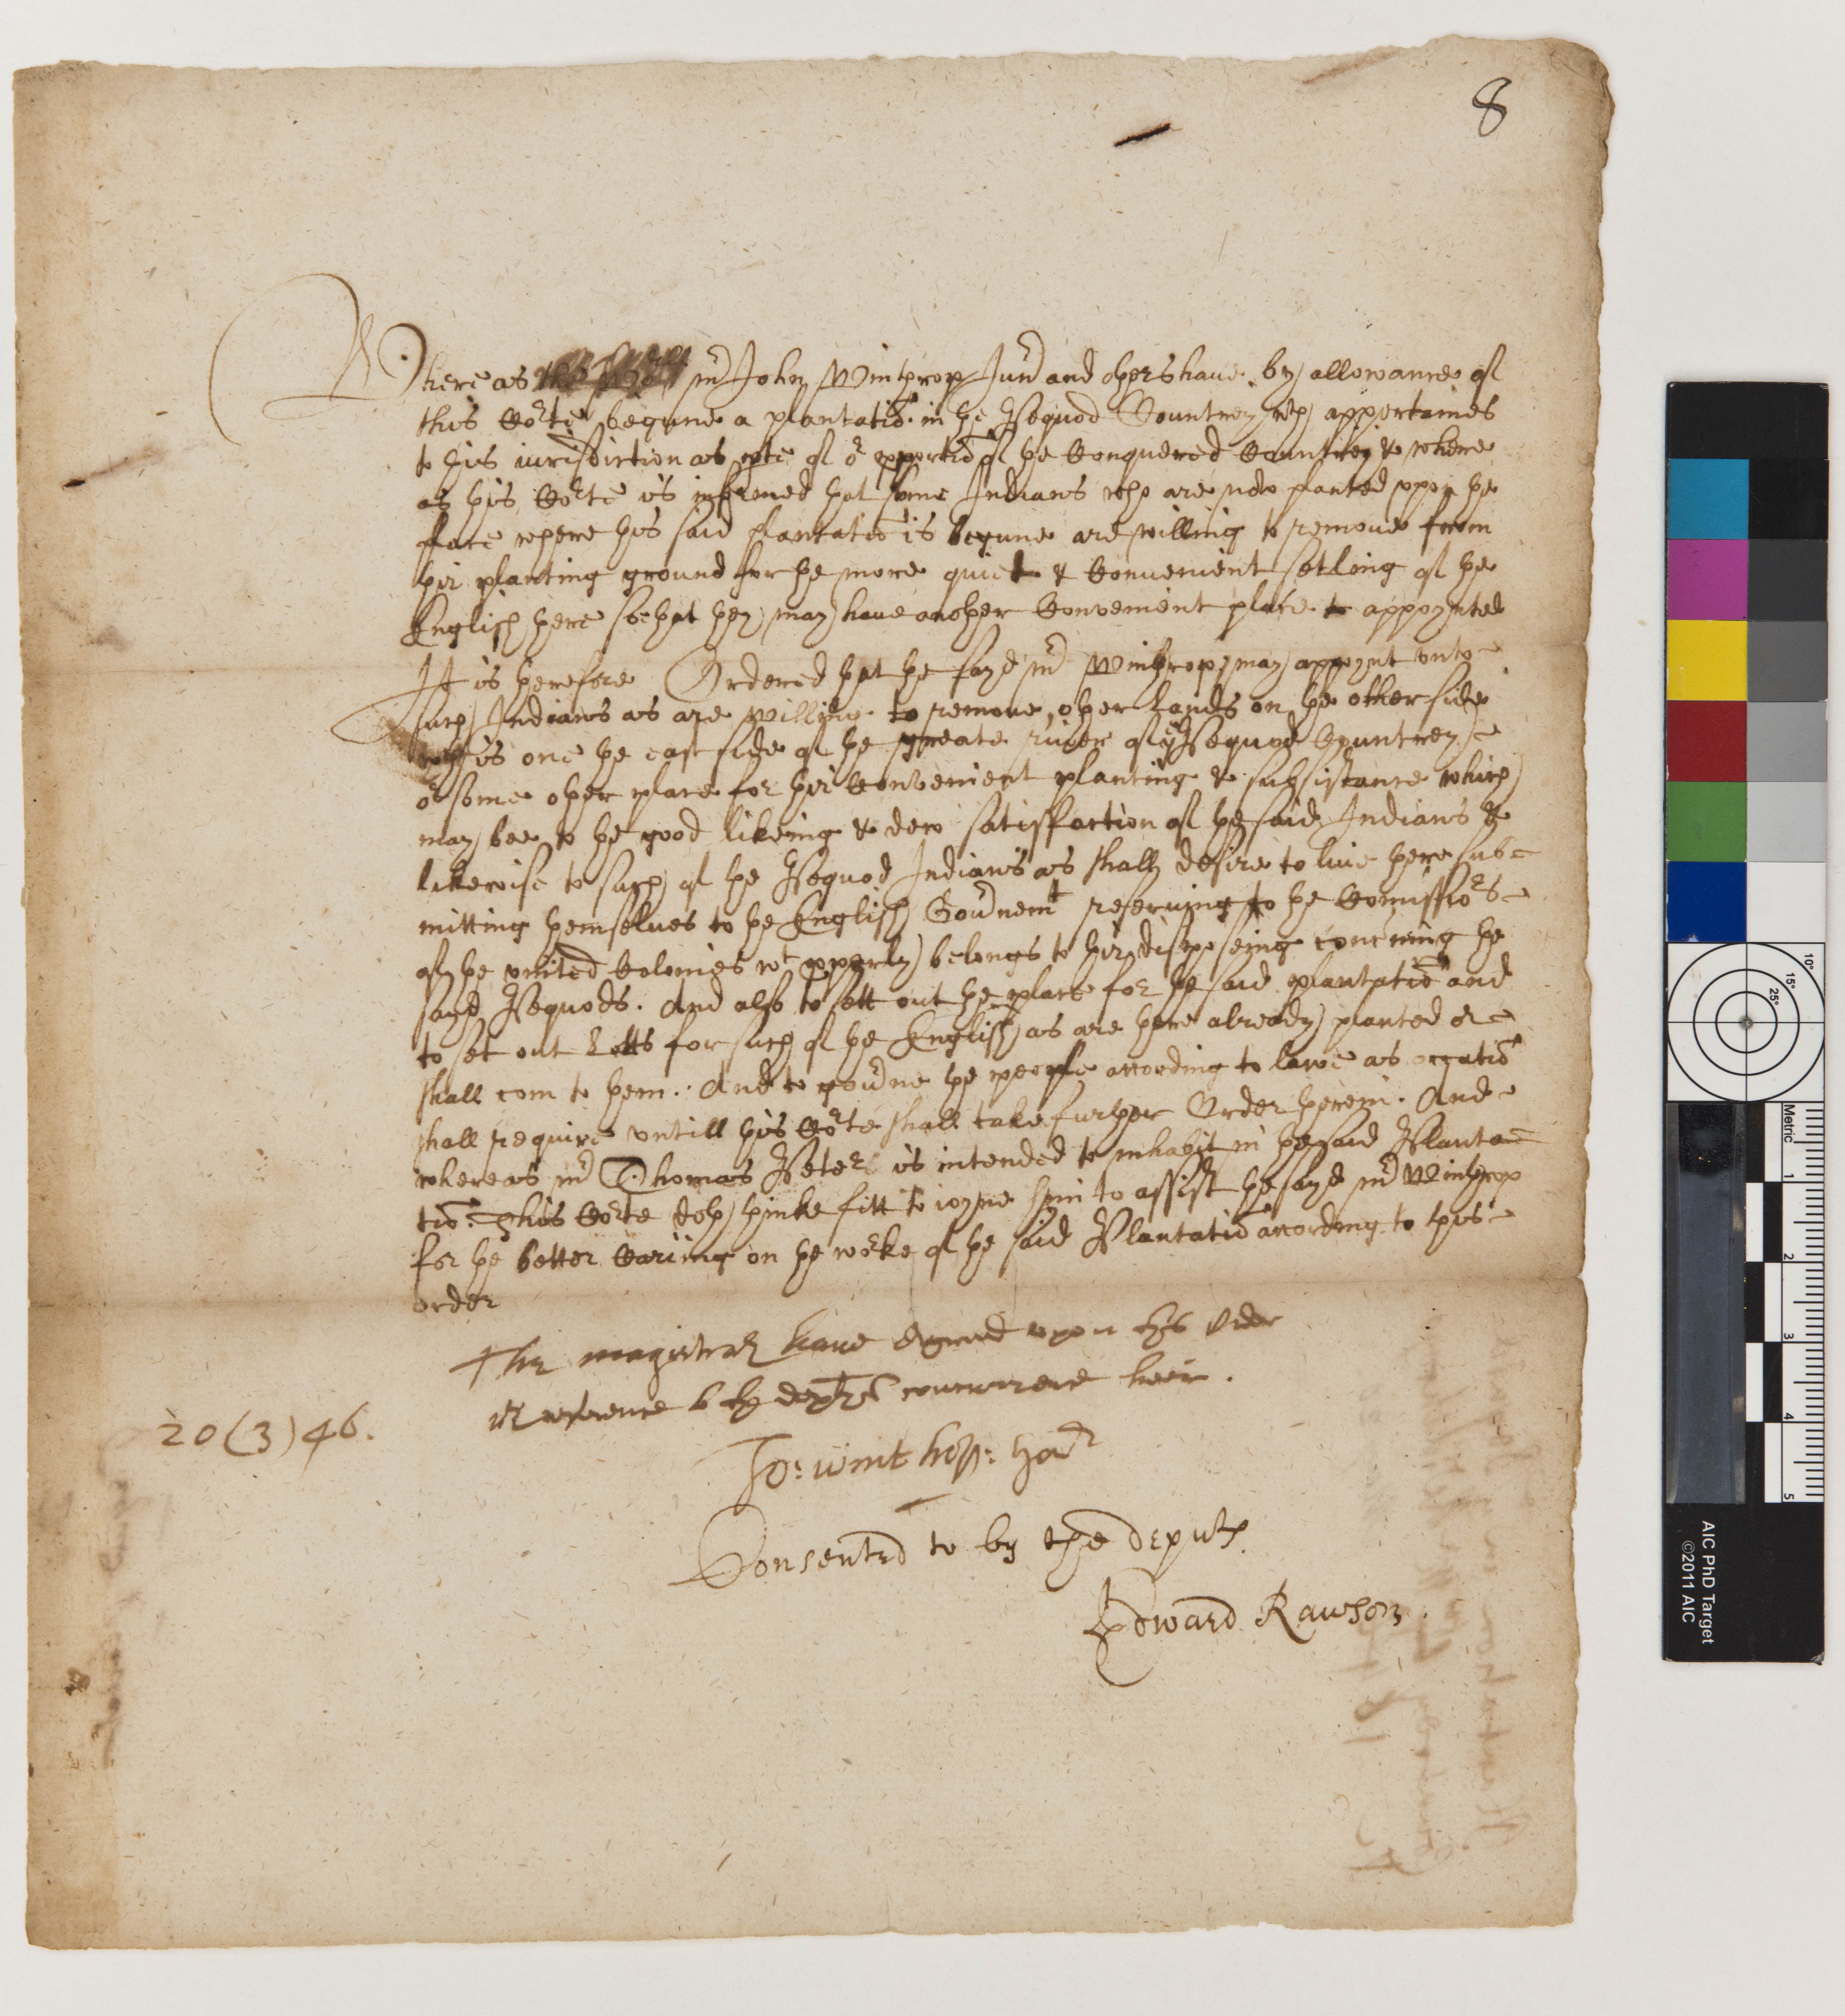 8
Whereas mr John Winthrop Junr and others haue by allowance of
this Corte begune a plantatiō in the Pequod Countrey wch appertaines
to this iurisdiction as pte of or proportiō of the Conquered Countrey & where
as this Corte is informed that some Indians who are now planted vppon the
place where this said plantatiō is begune are willing to remoue from
their planting ground for the more quiet & Conuenient setling of the
English there so that they may haue another Convenient place appoynted
It is therefore Ordered that the sayd mr Winthrop may appoynt vnto
such Indians as are willing to remoue other lands on the other side
wch is one the east side of the greate riuer of ye Pequod Countrey
or some other place for their Convenient planting & subsistance which
may bee to the good likeing & dew satisfaction of the said Indians &
likewise to such of the Pequod Indians as shall desire to liue there sub=
mitting themselues to the English Gouernemt reseruing to the Comissiors
of the vnited Colonies wt properly belongs to their disposeing concrning the
sayd Pequods. And also to sett out the place for the said plantatiō and
to set out Lotts for such of the English as are there already planted or
shall com to them. And to gouerne the people according to lawe as occatiō
shall require vntill this Corte shall take further Order therein. And
whereas mr Thomas Peter is intended to inhabit in the said Planta=
tiō: This Corte doth thinke fitt to ioyne him to assist the sayd mr Winthrop
for the better Cariing on the worke of the said Plantatiō according to this
order
The magistrats haue agreed upon this Order
wth reference to the deptyes concurrence heerin.
20 (3) 46.
Jo: Winthrop: Gor
Consented to by the deputs
Edward Rawson